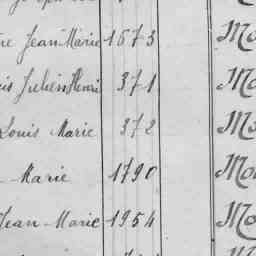 re Jean Marie 1573 Mo
is Julien Henri 371 Mo
Louis Marie 372 Mo
Marie 1790 Mo
Jean Marie 1954 Mo